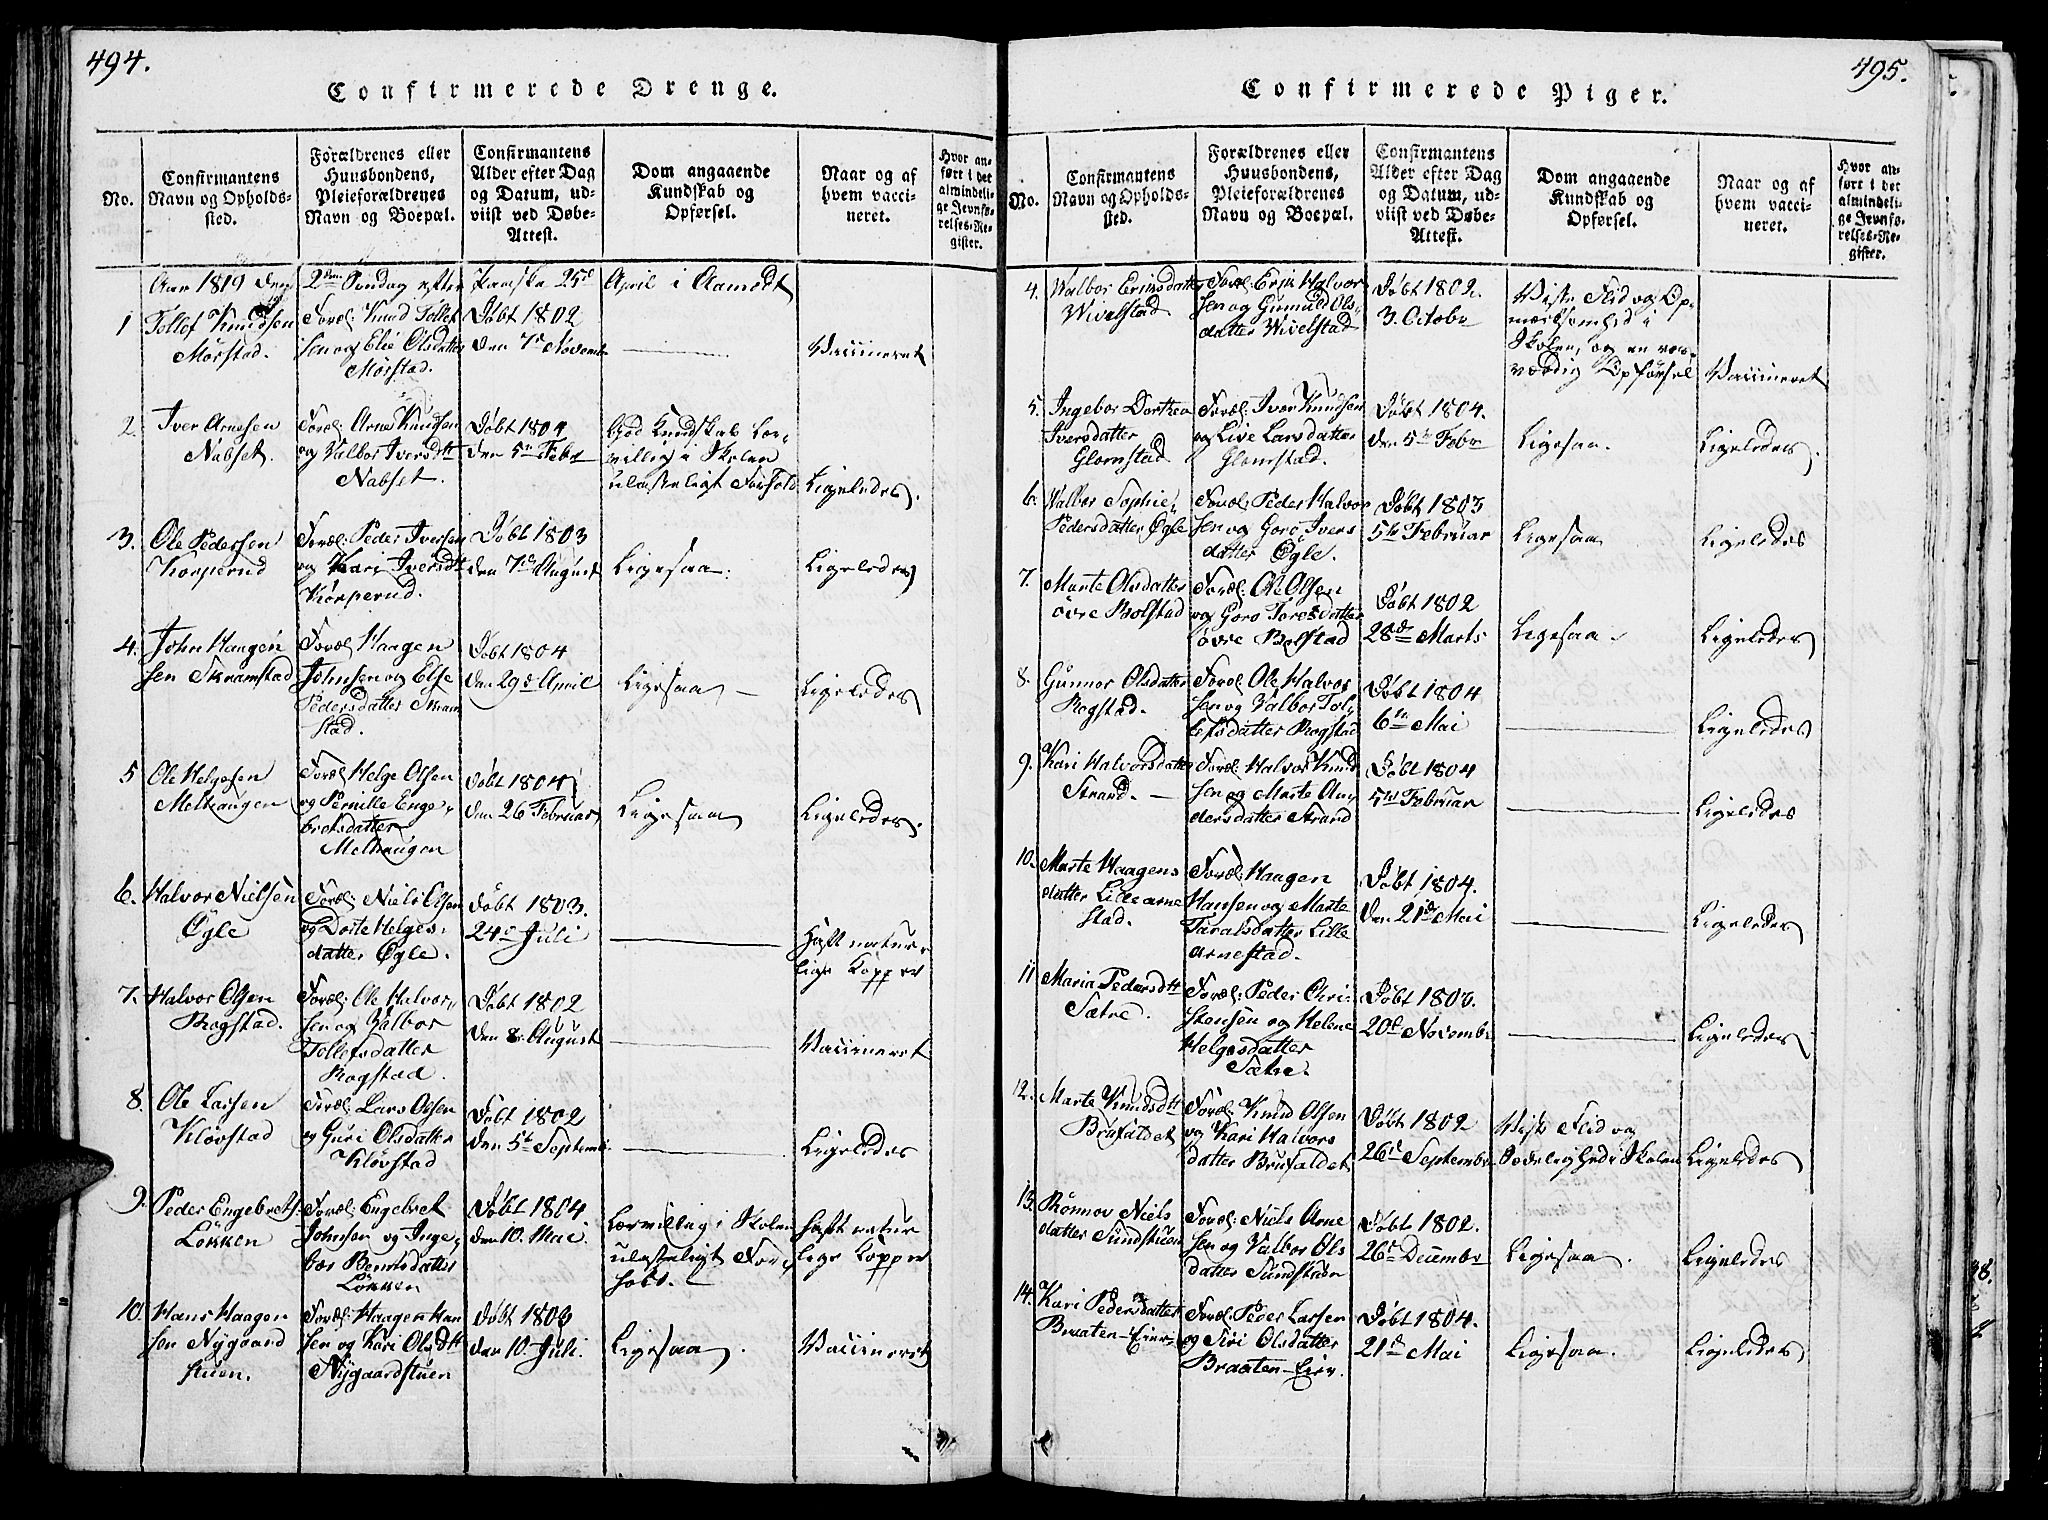 494.
Confirmerede Drenge.
No.
Confirmantens
Navn og Opholds-
sted.
Forældrenes eller
Huusbondens,
Pleieforældrenes
Navn og Boepæl.
Confirmantens
Alder efter Dag
og Datum, ud-
viist ved Døbe-
Attest.
Dom angaaende
Kundskab og
Opførsel.
Naar og af
hvem vacci-
neret.
Hvor an-
ført i det
almindeli-
ge Jevnfø-
relses-Re-
gister.
Aar 1819 den 2den Søndag efter Paaske 25de April i Aamodt
1
Tollef Knudsen
Mørstad.
Foræl: Knud Tollef
sen og Elie Olsdatter
Mørstad.
Døbt 1802
den 7de Novemb
Vaccineret
2.
Iver Arnesen
Nabset.
Foræl: Arne Knudsen
og Valbor Iversdtt
Nabset.
Døbt 1804
den 5te Febr
God Kundskab Lær-
villig i Skolen
ulasteligt Forhold
Ligeledes.
3.
Ole Pedersen
Korperud
Foræl: Peder Iversen
og Kari Iversdtt
Korperud.
Døbt 1803
den 7de August
Ligesaa.
Ligeledes
4.
John Haagen
sen Skramstad
Foræl: Haagen
Johnsen og Else
Pedersdatter Skram
stad.
Døbt 1804
den 29de April
Ligesaa
Ligeledes
5
Ole Helgesen
Melhaugen
Foræl: Helge Olsen
og Pernille Enge-
bretsdatter
Melhaugen
Døbt 1804
den 26 Februar
Ligesaa
Ligeledes.
6.
Halvor Nielsen
Øgle
Foræl: Niels Olsen
og Dorte Helges-
datter Øgle.
Døbt 1803.
24de Juli
Haft natur-
lige Kopper
7.
Halvor Olsen
Rogstad.
Foræl: Ole Halvor-
sen og Valbor
Tollefsdatter
Rogstad.
Døbt 1802
den 8. August
Vaccineret
8.
Ole Larsen
Kløvstad
Foræl: Lars Olsen
og Guri Olsdatter
Kløvstad
Døbt 1802
den 5te Septemb.
Ligeledes
9.
Peder Engebrets.
Løkken
Foræl: Engebret
Johnsen og Inge-
bor Berntsdatter
Løkken
Døbt 1804
den 10. Mai.
Lærvillig i Skolen
ulasteligt For-
hold.
Haft natur
lige Kopper
10.
Hans Haagen
sen Nygaard
stuen.
Foræl: Haagen Han
sen og Kari Olsdtt
Nygaardstuen
Døbt 1803
den 10. Juli.
Ligesaa.
Vaccineret
495.
Confirmerede Piger.
No.
Confirmantens
Navn og Opholds-
sted.
Forældrenes eller
Huusbondens,
Pleieforældrenes
Navn og Boepæl.
Confirmantens
Alder efter Dag
og Datum, ud-
viist ved Døbe-
Attest.
Dom angaaende
Kundskab og
Opførsel.
Naar og af
hvem vacci-
neret.
Hvor an-
ført i det
almindeli-
ge Jevnfø-
relses-Re-
gister.
4.
Valbor Eriksdatter
Wivelstad
Foræl: Erik Halvor
sen og Gunnild Ols-
datter Wivelstad
Døbt 1802.
3. Octobr
Viste Flid og Op-
mærksomhed i
Skolen, og en vær-
værdig Opførsel
Vaccineret
5.
Ingebor Dorthea
Iversdatter
Glomstad.
Foræl: Iver Knudsen
og Live Larsdatter
Glomstad.
Døbt 1804.
den 5te Febr
Ligesaa.
Ligeledes.
6.
Valbor Sophie
Pedersdatter Øgle
Foræl: Peder Halvor
sen og Goro Ivers
datter Øgle.
Døbt 1803
5te Februar
Ligesaa
Ligeledes
7.
Marte Olsdatter
øvre Bolstad
Foræl: Ole Olsen
og Goro Toresdatter
øvre Bolstad
Døbt 1802
28de Marts
Ligesaa.
Ligeledes
8.
Gunnor Olsdatter
Rogstad.
Foræl: Ole Halvor
sen og Valbor Tol-
lefsdatter Rogstad
Døbt 1804
6te Mai
Ligeledes
9.
Kari Halvorsdatter
Strand.
Foræl: Halvor Knud
sen og Marte An-
dersdatter Strand
Døbt 1804
5te Februar
Ligeledes
10.
Marte Haagens
datter Lille arne
stad.
Foræl: Haagen
Hansen og Marte
Taralsdatter Lille
arnestad.
Døbt 1804.
den 21de Mai
Ligeledes
11
Maria Pedersdtt
Sætre.
Foræl: Peder Chri-
stensen og Helene
Helgesdatter
Sætre.
20de Novembr
Ligeledes
12.
Marte Knudsdtt
Brufaldet
Foræl: Knud Olsen
og Kari Halvors
datter Brufaldet
Døbt 1802
26de Septembr
Viste Flid og
Sædelighed i Skolen
Ligeledes
13.
Rønnov Niels
datter Sundstuen
Foræl: Niels Arne
sen og Valbor Ols
datter Sundstuen
Døbt 1802.
26de Decembr
Ligesaa.
Ligeledes
14.
Kari Pedersdatter
Braaten-Eier
Foræl: Peder Larsen
og Siri Olsdatter
Braaten-Eier.
Døbt 1804.
21de Mai
Ligesaa.
Ligeledes